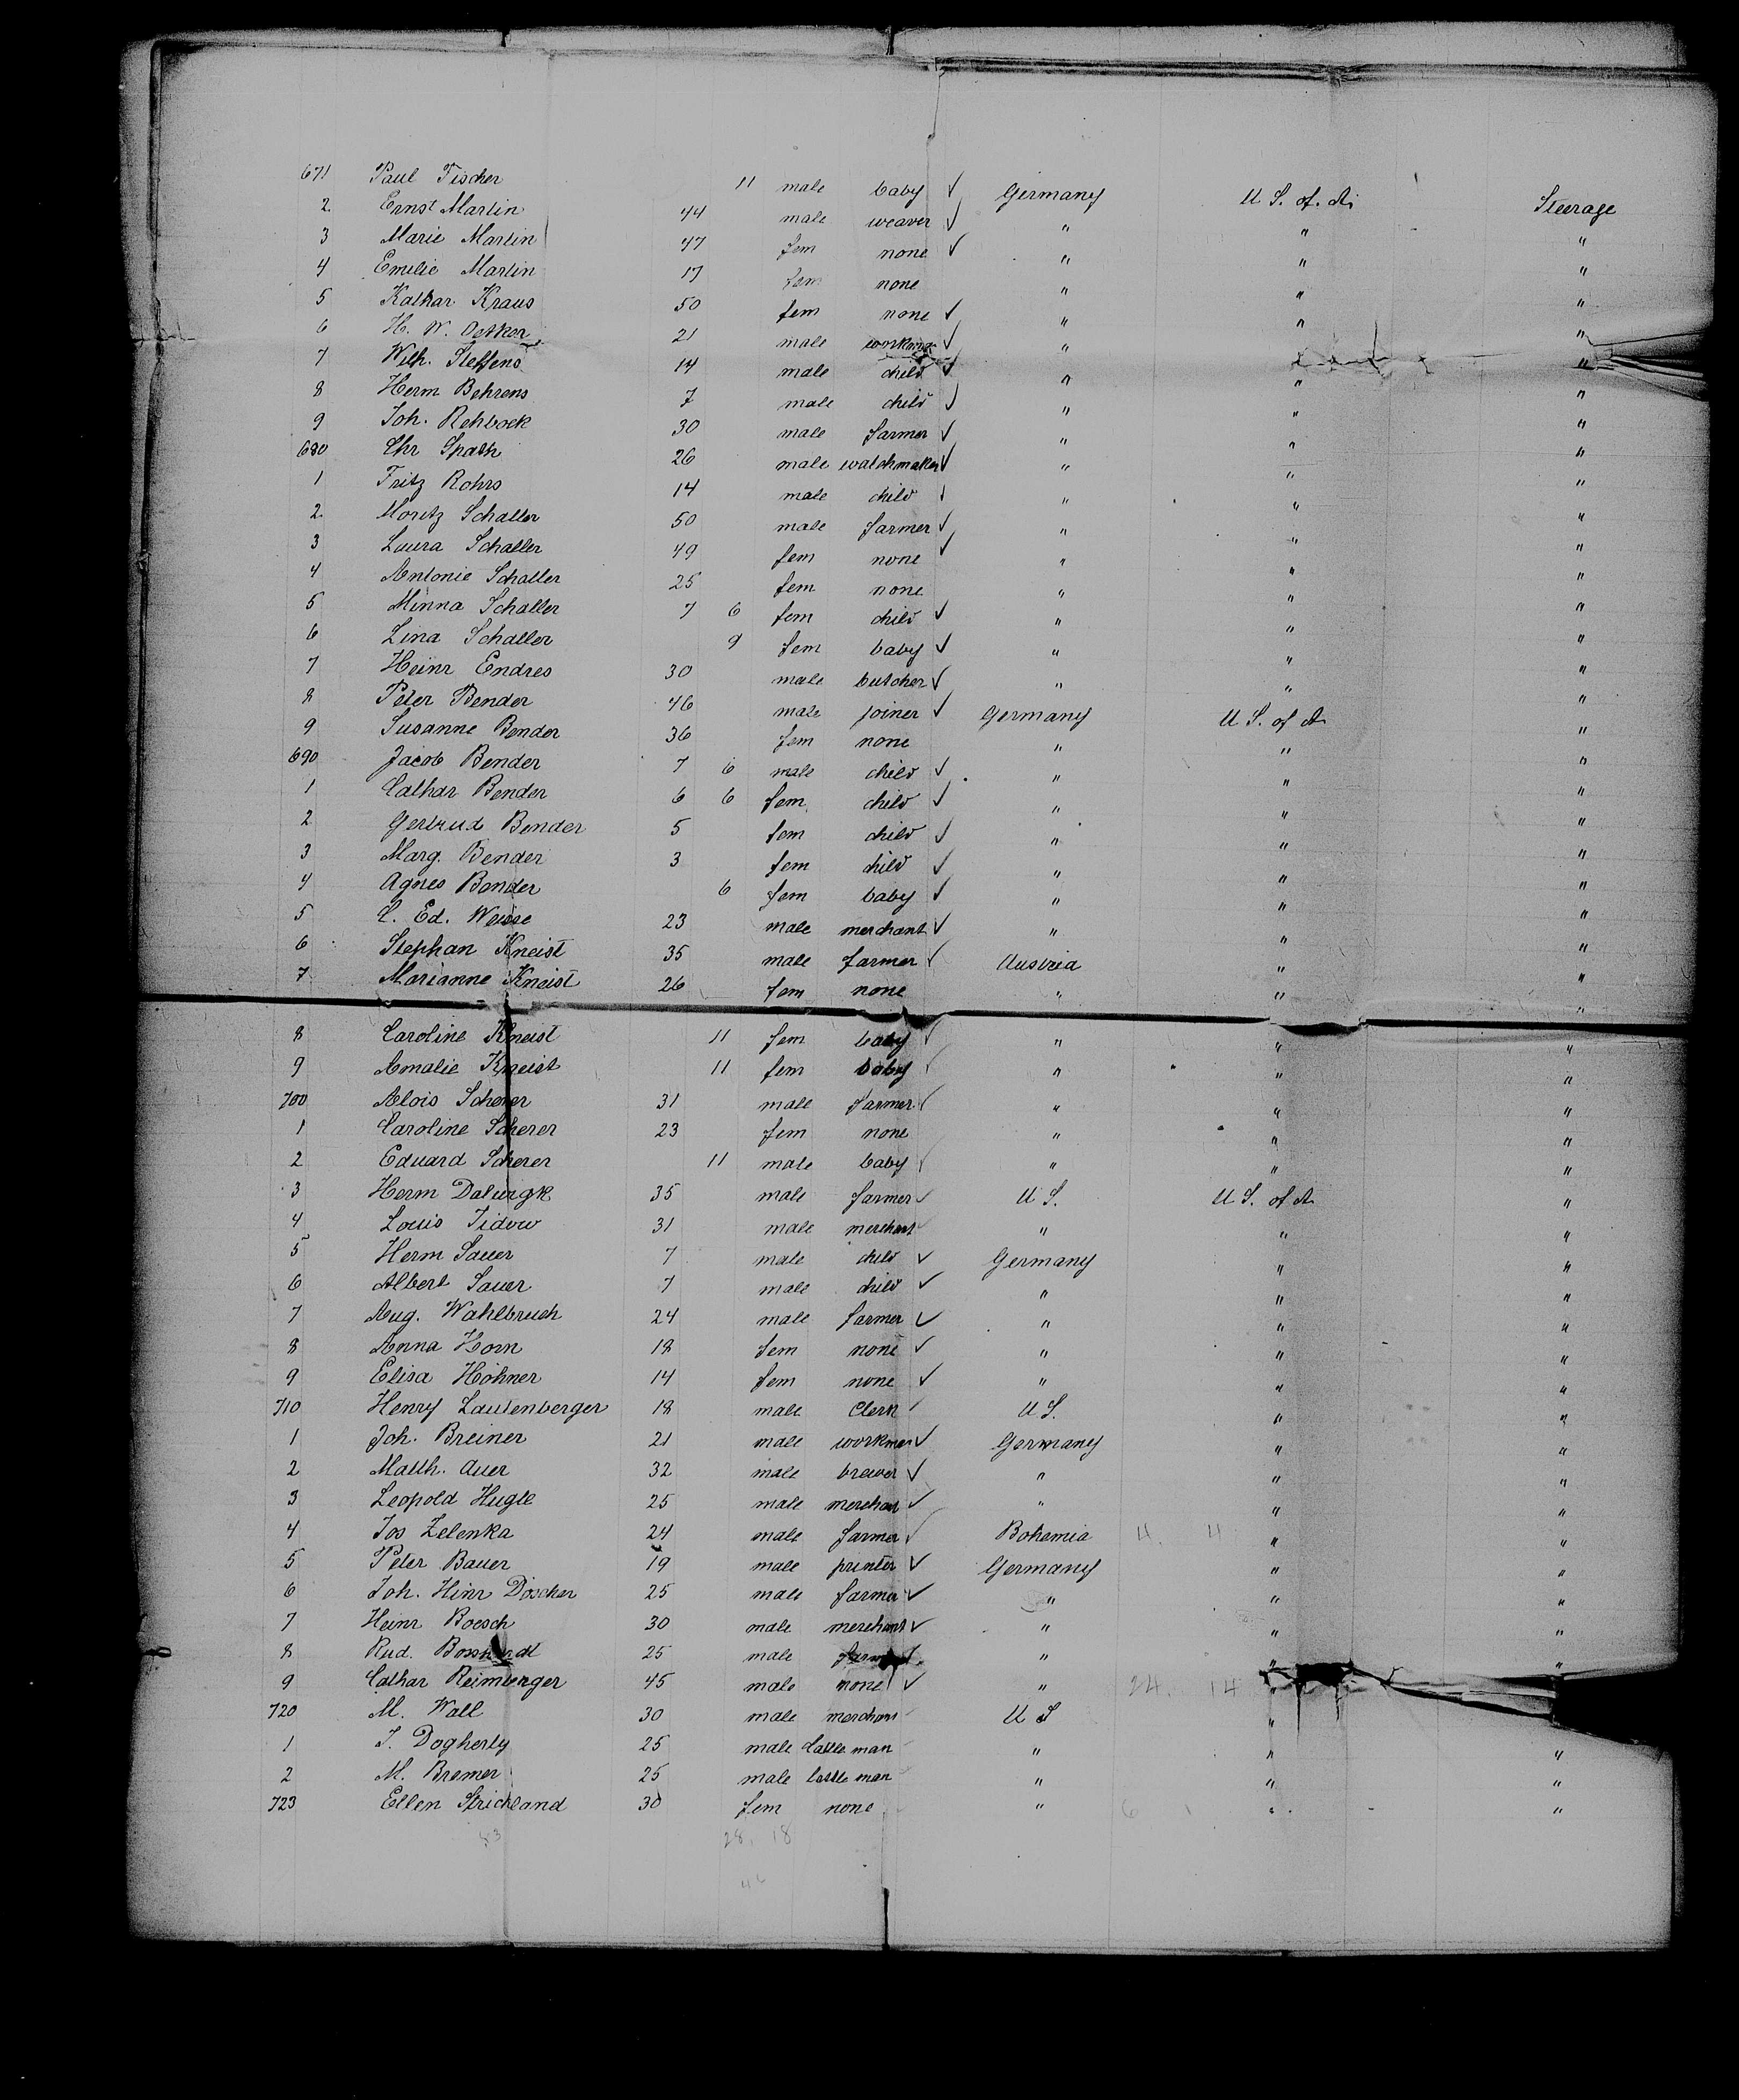 671 Paul Fischer 11 male baby ✓ Germany U S. of. A. Steerage
2 Ernst Martin 44 male weaver ✓ " " "
3 Marie Martin 47 fem none ✓ " " "
4 Emilie Martin 17 fem none " " "
5 Kathar Kraus 50 fem none ✓ " " "
6 H. W. Oetker 21 male ✓ " " "
7 Wilh. Steffens 14 male child ✓ " " "
8 Herm Behrens 7 male child ✓ " " "
9 Joh. Rehbock 30 male farmer ✓ " " "
680 Chr Spath 26 male watchmaker ✓ " " "
1 Fritz Rohrs 14 male child ✓ " " "
2 Moritz Schaller 50 male farmer ✓ " " "
3 Laura Schaller 49 fem none ✓ " " "
4 Antonie Schaller 25 fem none " " "
5 Minna Schaller 7 6 fem child ✓ " " "
6 Lina Schaller 9 fem baby ✓ " " "
7 Heinr Endres 30 male butcher ✓ " " "
8 Peter Bender 46 male joiner ✓ Germany U S. of A "
9 Susanne Bender 36 fem none " " "
690 Jacob Bender 7 6 male child ✓ " " "
1 Cathar Bender 6 6 fem child ✓ " " "
2 Gertrud Bender 5 fem child ✓ " " "
3 Marg. Bender 3 fem child ✓ " " "
4 Agnes Bender 6 fem baby ✓ " " "
5 C. Ed. Weisse 23 male merchant ✓ " " "
6 Stephan Kneist 35 male farmer ✓ Austria " "
7 Marianne Kneist 26 fem none " " "
8 Caroline Kneist 11 fem baby ✓ " " "
9 Amalie Kneist 11 fem baby ✓ " " "
700 Alois Scherer 31 male farmer ✓ " " "
1 Caroline Scherer 23 fem none " " "
2 Eduard Scherer 11 male baby ✓ " " "
3 Herm 35 male farmer ✓ U S. U S. of A "
4 Louis Tidow 31 male merchant ✓ " " "
5 Herm Sauer 7 male child ✓ Germany " "
6 Albert Sauer 7 male child ✓ " " "
7 Aug. Wahlbruch 24 male farmer ✓ " " "
8 Anna Horn 18 fem none ✓ " " "
9 Elisa Höhner 14 fem none ✓ " " "
710 Henry Lautenberger 18 male Clerk ✓ U S. " "
1 Joh. Breiner 21 male workman ✓ Germany " "
2 Matth. Auer 32 male brewer ✓ " " "
3 Leopold Hugle 25 male merchant ✓ " " "
4 Jos Zelenka 24 male farmer ✓ Bohemia 4. 4 " "
5 Peter Bauer 19 male printer ✓ Germany " "
6 Joh. Hinr Döscher 25 male farmer ✓ " " "
7 Heinr Boesch 30 male merchant ✓ " " "
8 Rud. 25 male ✓ " " "
9 Cathar Reimberger 45 male none ✓ " 24. 14 "
720 M. Wall 30 male merchant U S "
1 J. Dogherty 25 male Cattle man " " "
2 M. Bremer 25 male Cattle man " " "
723 Ellen Strickland 30 fem none " 6 1 " "
53 28. 18
46